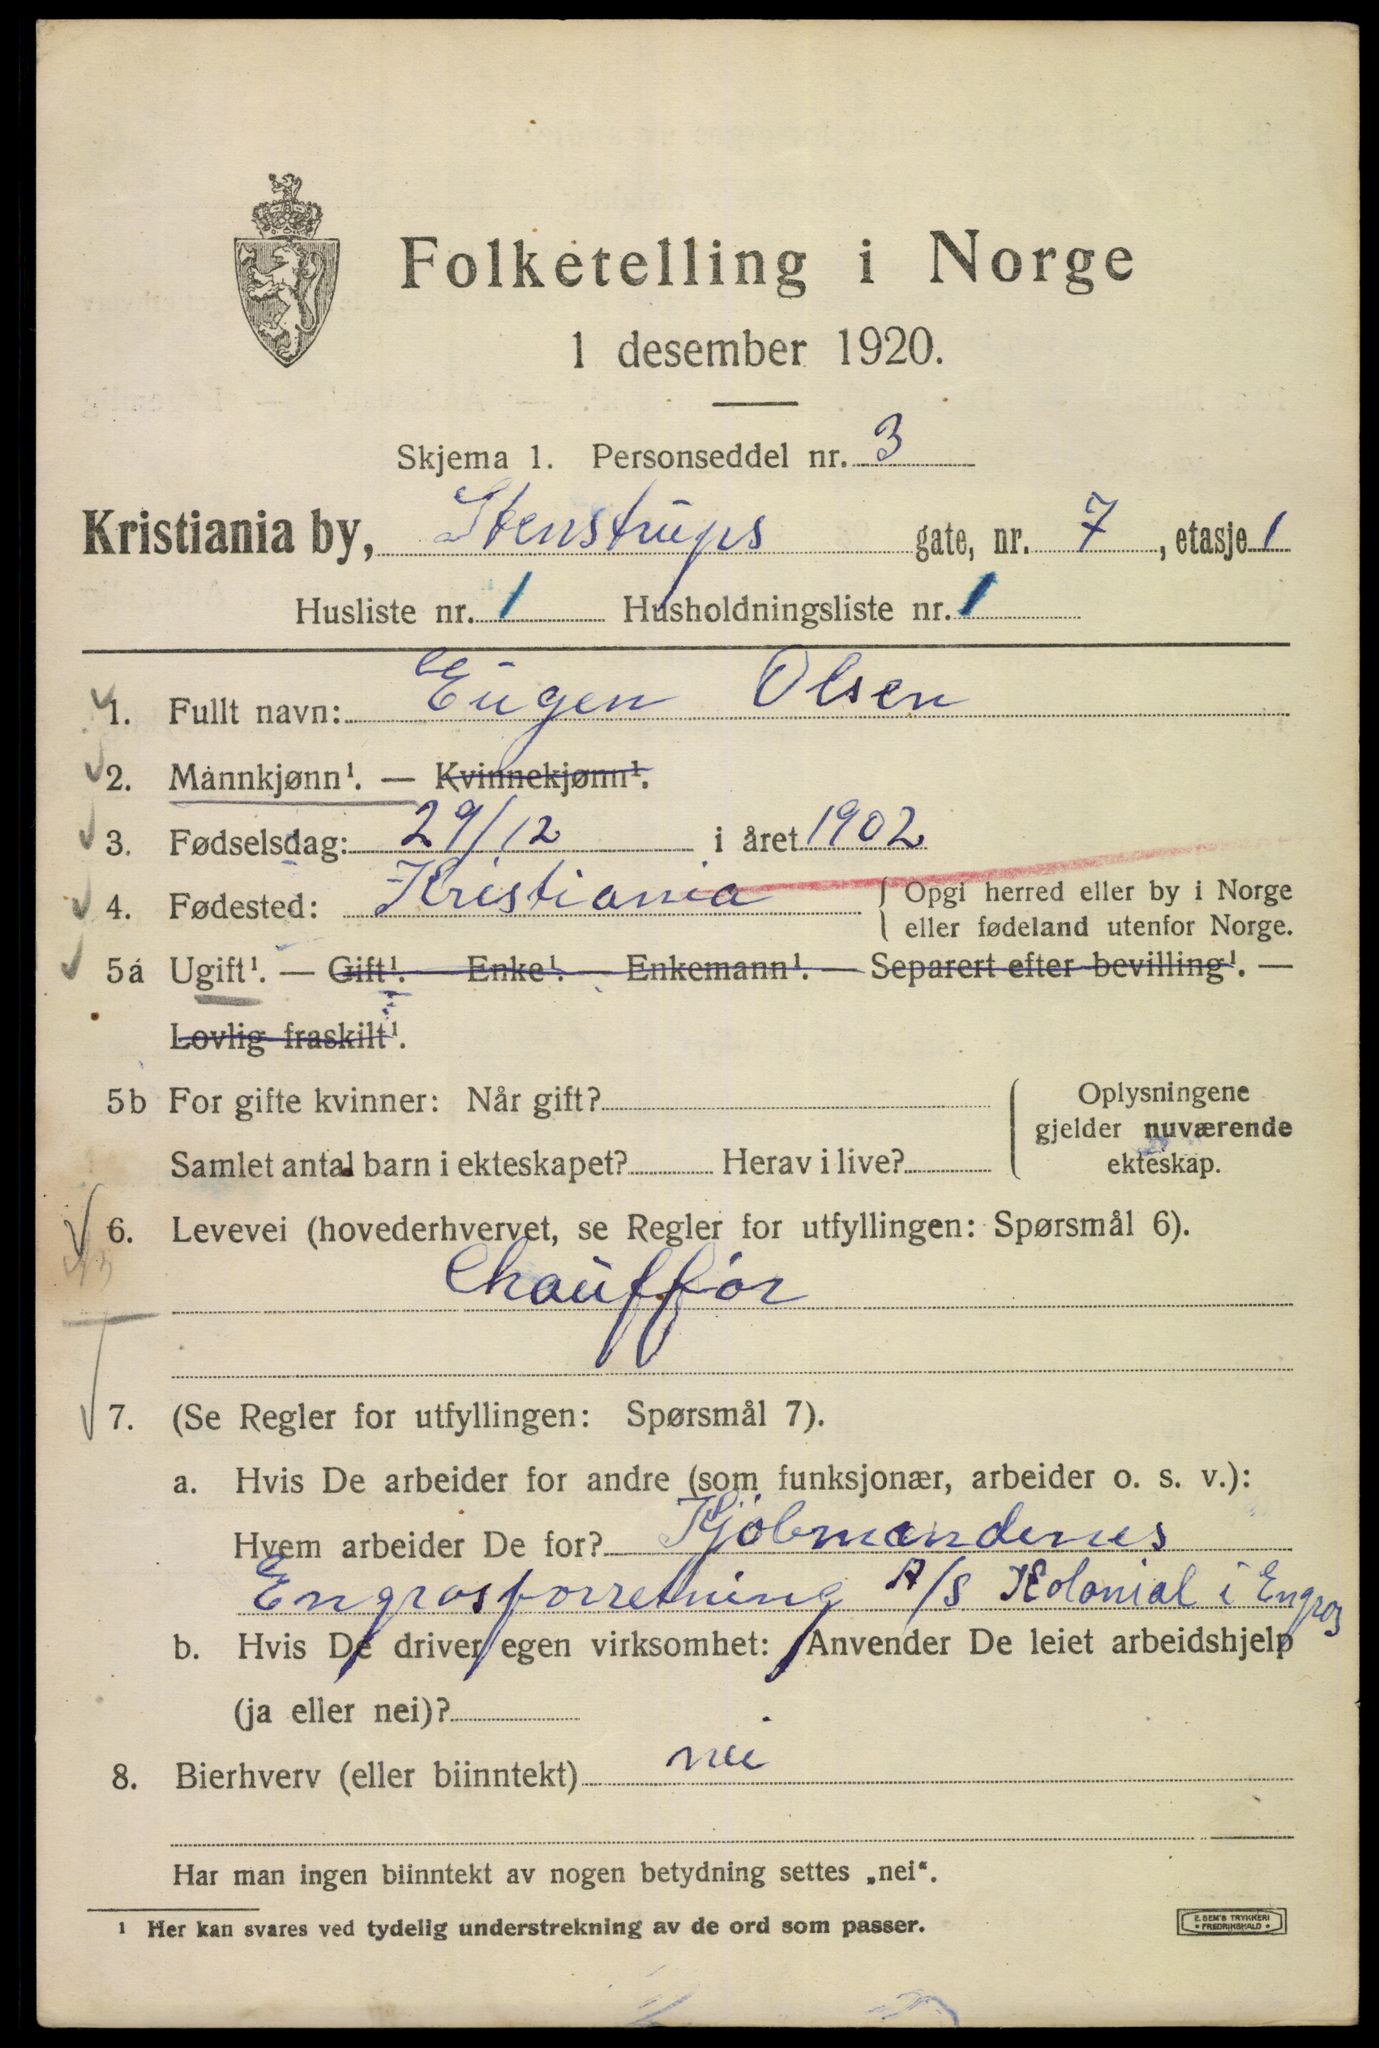 Folketelling i Norge
1 desember 1920.
Skjema 1. Personseddel nr. 3
Kristiania by, Stenstrups gate, nr. 7, etasje 1
Husliste nr. 1 Husholdningsliste nr. 1
1. Fullt navn: Eugen Olsen
2. Mannkjønn¹. — Kvinnekjønn¹.
3. Fødselsdag: 29/12 i året 1902
4. Fødested: Kristiania { Opgi herred eller by i Norge
eller fødeland utenfor Norge.
5a Ugift¹. — Gift¹. — Enke¹. — Enkemann¹. — Separert efter bevilling¹. —
Lovlig fraskilt¹.
5b For gifte kvinner: Når gift?
Samlet antal barn i ekteskapet? Herav i live?
Oplysningene
gjelder nuværende
ekteskap.
6. Levevei (hovederhvervet, se Regler for utfyllingen: Spørsmål 6).
Chauffør
7. (Se Regler for utfyllingen: Spørsmål 7).
a. Hvis De arbeider for andre (som funksjonær, arbeider o. s. v.):
Hvem arbeider De for? Kjøbmændenes
Engrosforretning A/S Kolonial i Engros
b. Hvis De driver egen virksomhet: Anvender De leiet arbeidshjelp
(ja eller nei)?
8. Bierhverv (eller biinntekt) nei
Har man ingen biinntekt av nogen betydning settes „nei“.
¹ Her kan svares ved tydelig understrekning av de ord som passer.
E. SEM'S TRYKKERI
FREDRIKSHALD